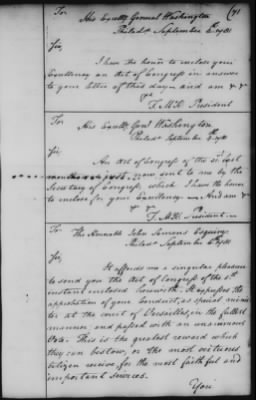 To
His Excelly General Washington
Philada September 6th 1781
Sir,
I have the honor to inclose your
Excellency an Act of Congress in answer
to your letter of this day and am &c
&c
T. M.K. President
To
His Excelly Genl Washington
Philada September 1781
Sir,
An Act of Congress of the
now sent to me by the
Secretary of Congress, which I have the honor
to inclose for your Excellency And am &c
T. M.K. President
To The Honorable John Laurens Esquire
Philada September 6 1781
Sir,
It affords me a singular pleasure
to send you the Act of Congress of the 5th
instant inclosed herewith. It expresses the
approbation of your Conduct, as special minis-
ter at the court of Versailles, in the fullest
manner and passed with an unanimous
Vote. This is the greatest reward which
they can bestow, or the most virtuous
citizen receive for the most faithful and
important services.
Your